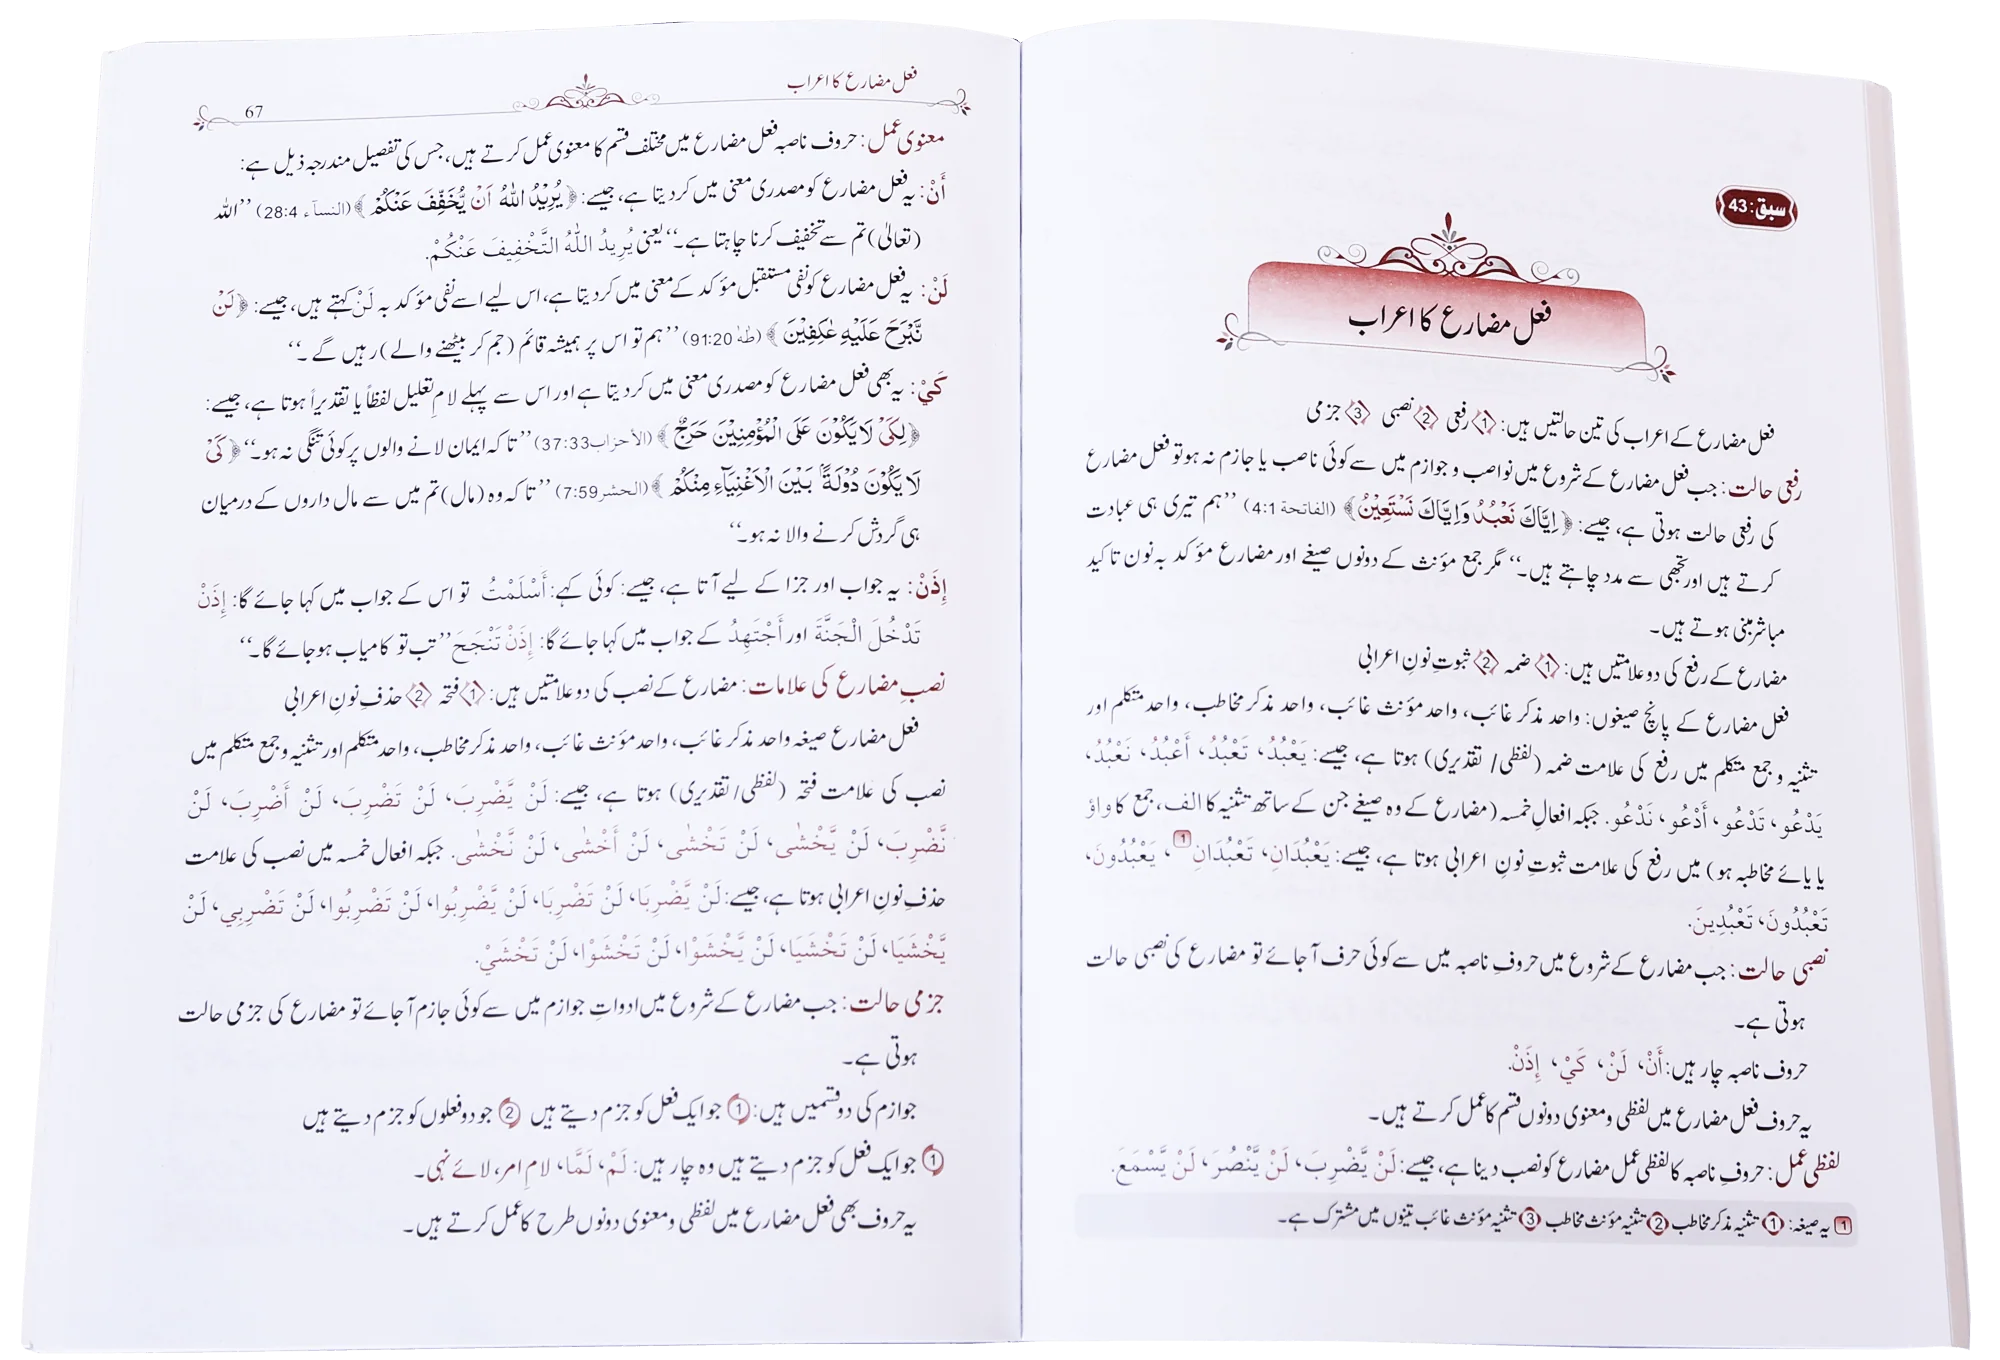 سبق: 43
فعل مضارع کا اعراب
فعل مضارع کے اعراب کی تین حالتیں ہیں: 1 رفعی 2 نصبی 3 جزمی
رفعی حالت: جب فعل مضارع کے شروع میں نواصب و جوازم میں سے کوئی ناصب یا جازم نہ ہو تو فعل مضارع
کی رفعی حالت ہوتی ہے، جیسے: ﴿اِيَّاكَ نَعْبُدُ وَاِيَّاكَ نَسْتَعِيْنُ﴾ (الفاتحة 4:1) ’’ہم تیری ہی عبادت
کرتے ہیں اور تجھی سے مدد چاہتے ہیں۔‘‘ مگر جمع مؤنث کے دونوں صیغے اور مضارع مؤکد بہ نون تاکید
مباشر مبنی ہوتے ہیں۔
مضارع کے رفع کی دو علامتیں ہیں: 1 ضمہ 2 ثبوتِ نونِ اعرابی
فعل مضارع کے پانچ صیغوں: واحد مذکر غائب، واحد مؤنث غائب، واحد مذکر مخاطب، واحد متکلم اور
تثنیہ و جمع متکلم میں رفع کی علامت ضمہ (لفظی/ تقدیری) ہوتا ہے، جیسے: يَعْبُدُ، تَعْبُدُ، أَعْبُدُ، نَعْبُدُ،
يَدْعُو، تَدْعُو، أَدْعُو، نَدْعُو. جبکہ افعالِ خمسہ (مضارع کے وہ صیغے جن کے ساتھ تثنیہ کا الف، جمع کا واؤ
یا یائے مخاطبہ ہو) میں رفع کی علامت ثبوتِ نونِ اعرابی ہوتا ہے، جیسے: يَعْبُدَانِ، تَعْبُدَانِ 1، يَعْبُدُونَ،
تَعْبُدُونَ، تَعْبُدِينَ.
نصبی حالت: جب مضارع کے شروع میں حروفِ ناصبہ میں سے کوئی حرف آ جائے تو مضارع کی نصبی حالت
ہوتی ہے۔
حروف ناصبہ چار ہیں: أَنْ، لَنْ، كَيْ، إِذَنْ.
یہ حروف فعل مضارع میں لفظی و معنوی دونوں قسم کا عمل کرتے ہیں۔
لفظی عمل: حروفِ ناصبہ کا لفظی عمل مضارع کو نصب دینا ہے، جیسے: لَنْ يَّضْرِبَ، لَنْ يَّنْصُرَ، لَنْ يَّسْمَعَ.
1 یہ صیغہ: 1 تثنیہ مذکر مخاطب 2 تثنیہ مؤنث مخاطب 3 تثنیہ مؤنث غائب تینوں میں مشترک ہے۔
فعل مضارع کا اعراب
67
معنوی عمل: حروف ناصبہ فعل مضارع میں مختلف قسم کا معنوی عمل کرتے ہیں، جس کی تفصیل مندرجہ ذیل ہے:
أَنْ: یہ فعل مضارع کو مصدری معنی میں کر دیتا ہے، جیسے: ﴿يُرِيْدُ اللّٰهُ اَنْ يُّخَفِّفَ عَنْكُمْ﴾ (النسآء 28:4) ’’اللہ
(تعالیٰ) تم سے تخفیف کرنا چاہتا ہے۔‘‘ یعنی يُرِيدُ اللّٰهُ التَّخْفِيفَ عَنْكُمْ.
لَنْ: یہ فعل مضارع کو نفی مستقبل مؤکد کے معنی میں کر دیتا ہے، اس لیے اسے نفی مؤکد بہ لَنْ کہتے ہیں، جیسے: ﴿لَنْ
نَّبْرَحَ عَلَيْهِ عٰكِفِيْنَ﴾ (طٰهٰ 91:20) ’’ہم تو اس پر ہمیشہ قائم (جم کر بیٹھنے والے) رہیں گے۔‘‘
كَيْ: یہ بھی فعل مضارع کو مصدری معنی میں کر دیتا ہے اور اس سے پہلے لامِ تعلیل لفظاً یا تقدیراً ہوتا ہے، جیسے:
﴿لِكَىْ لَا يَكُوْنَ عَلَى الْمُؤْمِنِيْنَ حَرَجٌ﴾ (الأحزاب 37:33) ’’تاکہ ایمان لانے والوں پر کوئی تنگی نہ ہو۔‘‘ ﴿كَىْ
لَا يَكُوْنَ دُوْلَةًۢ بَيْنَ الْاَغْنِيَآءِ مِنْكُمْ﴾ (الحشر 7:59) ’’تاکہ وہ (مال) تم میں سے مال داروں کے درمیان
ہی گردش کرنے والا نہ ہو۔‘‘
إِذَنْ: یہ جواب اور جزا کے لیے آتا ہے، جیسے: کوئی کہے: أَسْلَمْتُ تو اس کے جواب میں کہا جائے گا: إِذَنْ
تَدْخُلَ الْجَنَّةَ اور أَجْتَهِدُ کے جواب میں کہا جائے گا: إِذَنْ تَنْجَحَ ’’تب تو کامیاب ہو جائے گا۔‘‘
نصبِ مضارع کی علامات: مضارع کے نصب کی دو علامتیں ہیں: 1 فتحہ 2 حذفِ نونِ اعرابی
فعل مضارع صیغہ واحد مذکر غائب، واحد مؤنث غائب، واحد مذکر مخاطب، واحد متکلم اور تثنیہ و جمع متکلم میں
نصب کی علامت فتحہ (لفظی/ تقدیری) ہوتا ہے، جیسے: لَنْ يَّضْرِبَ، لَنْ تَضْرِبَ، لَنْ أَضْرِبَ، لَنْ
نَّضْرِبَ، لَنْ يَّخْشٰى، لَنْ تَخْشٰى، لَنْ أَخْشٰى، لَنْ نَّخْشٰى. جبکہ افعال خمسہ میں نصب کی علامت
حذفِ نونِ اعرابی ہوتا ہے، جیسے: لَنْ يَّضْرِبَا، لَنْ تَضْرِبَا، لَنْ يَّضْرِبُوا، لَنْ تَضْرِبُوا، لَنْ تَضْرِبِي، لَنْ
يَّخْشَيَا، لَنْ تَخْشَيَا، لَنْ يَّخْشَوْا، لَنْ تَخْشَوْا، لَنْ تَخْشَيْ.
جزمی حالت: جب مضارع کے شروع میں ادواتِ جوازم میں سے کوئی جازم آ جائے تو مضارع کی جزمی حالت
ہوتی ہے۔
جوازم کی دو قسمیں ہیں: 1 جو ایک فعل کو جزم دیتے ہیں 2 جو دو فعلوں کو جزم دیتے ہیں
1 جو ایک فعل کو جزم دیتے ہیں وہ چار ہیں: لَمْ، لَمَّا، لامِ امر، لائے نہی۔
یہ حروف بھی فعل مضارع میں لفظی و معنوی دونوں طرح کا عمل کرتے ہیں۔